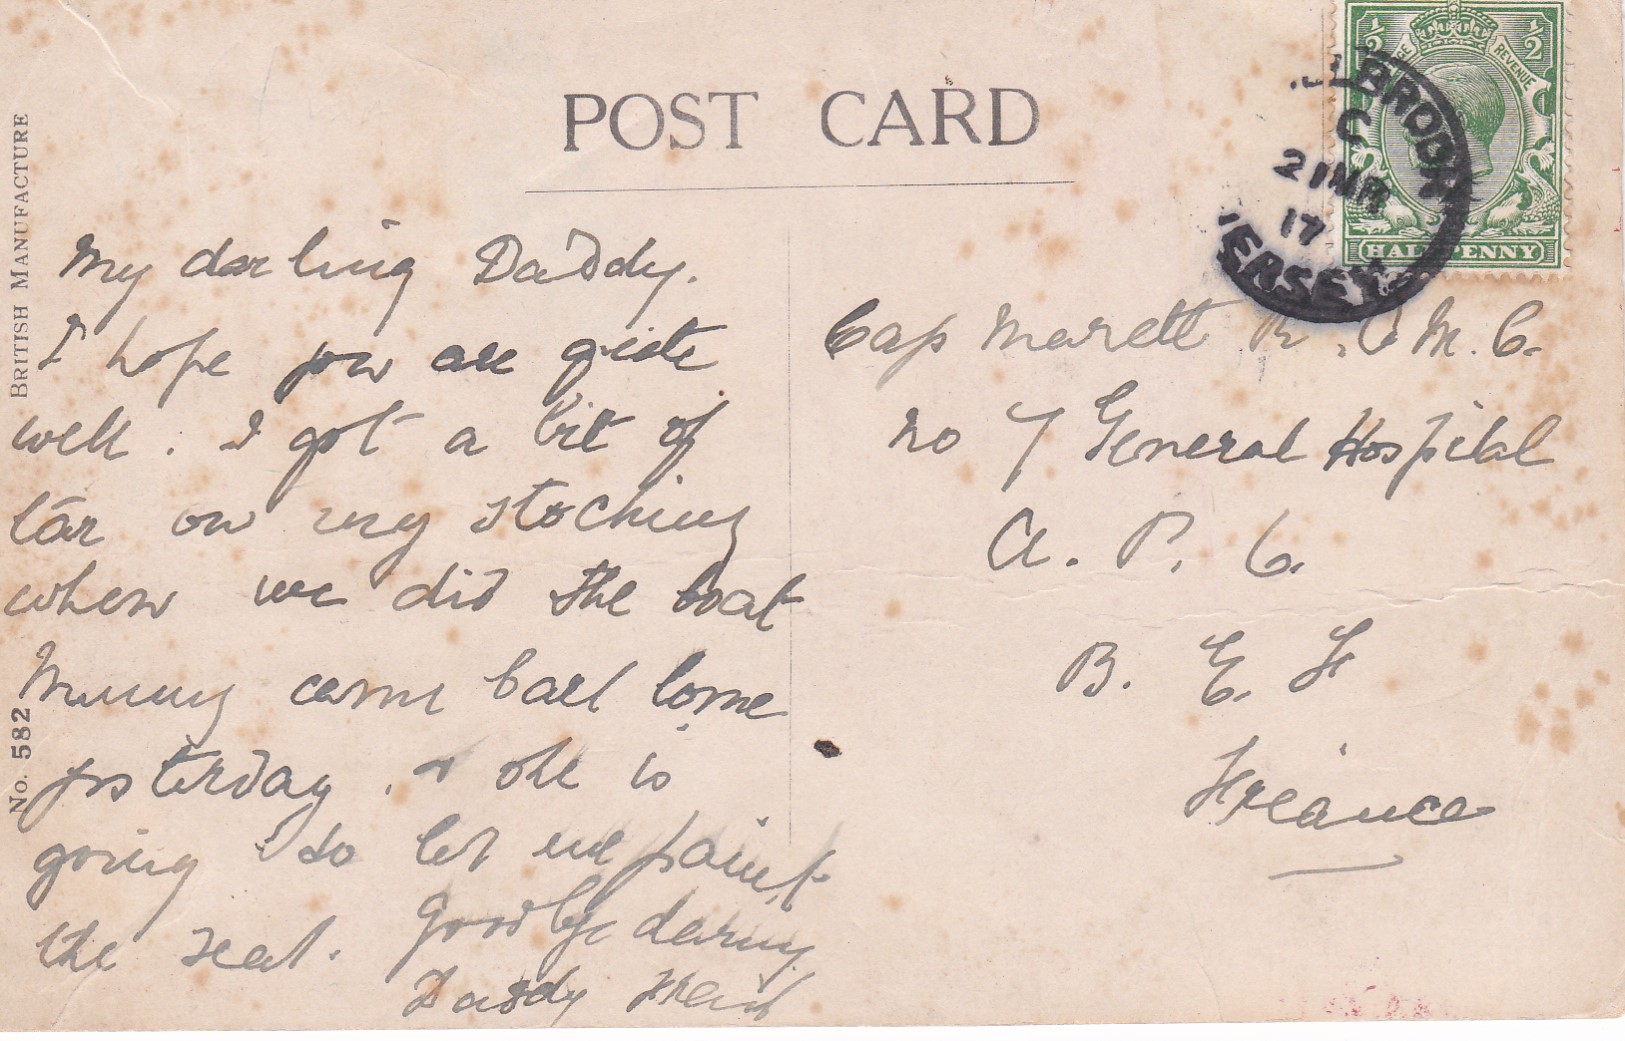 POST CARD
BRITISH MANUFACTURE
No. 582
1/2 REVENUE 1/2
HALFPENNY
LBROOK
C
21 MR
17
JERSEY
My darling Daddy.
I hope you are quite
well. I got a bit of
tar on my stocking
when we did the boat
Mummy came back home
yesterday. & she is
going to let me paint
the seat. Goodbye
Daddy
Cap Marett R.A.M.C.
No 7 General Hospital
A. P. O.
B. E. F
France